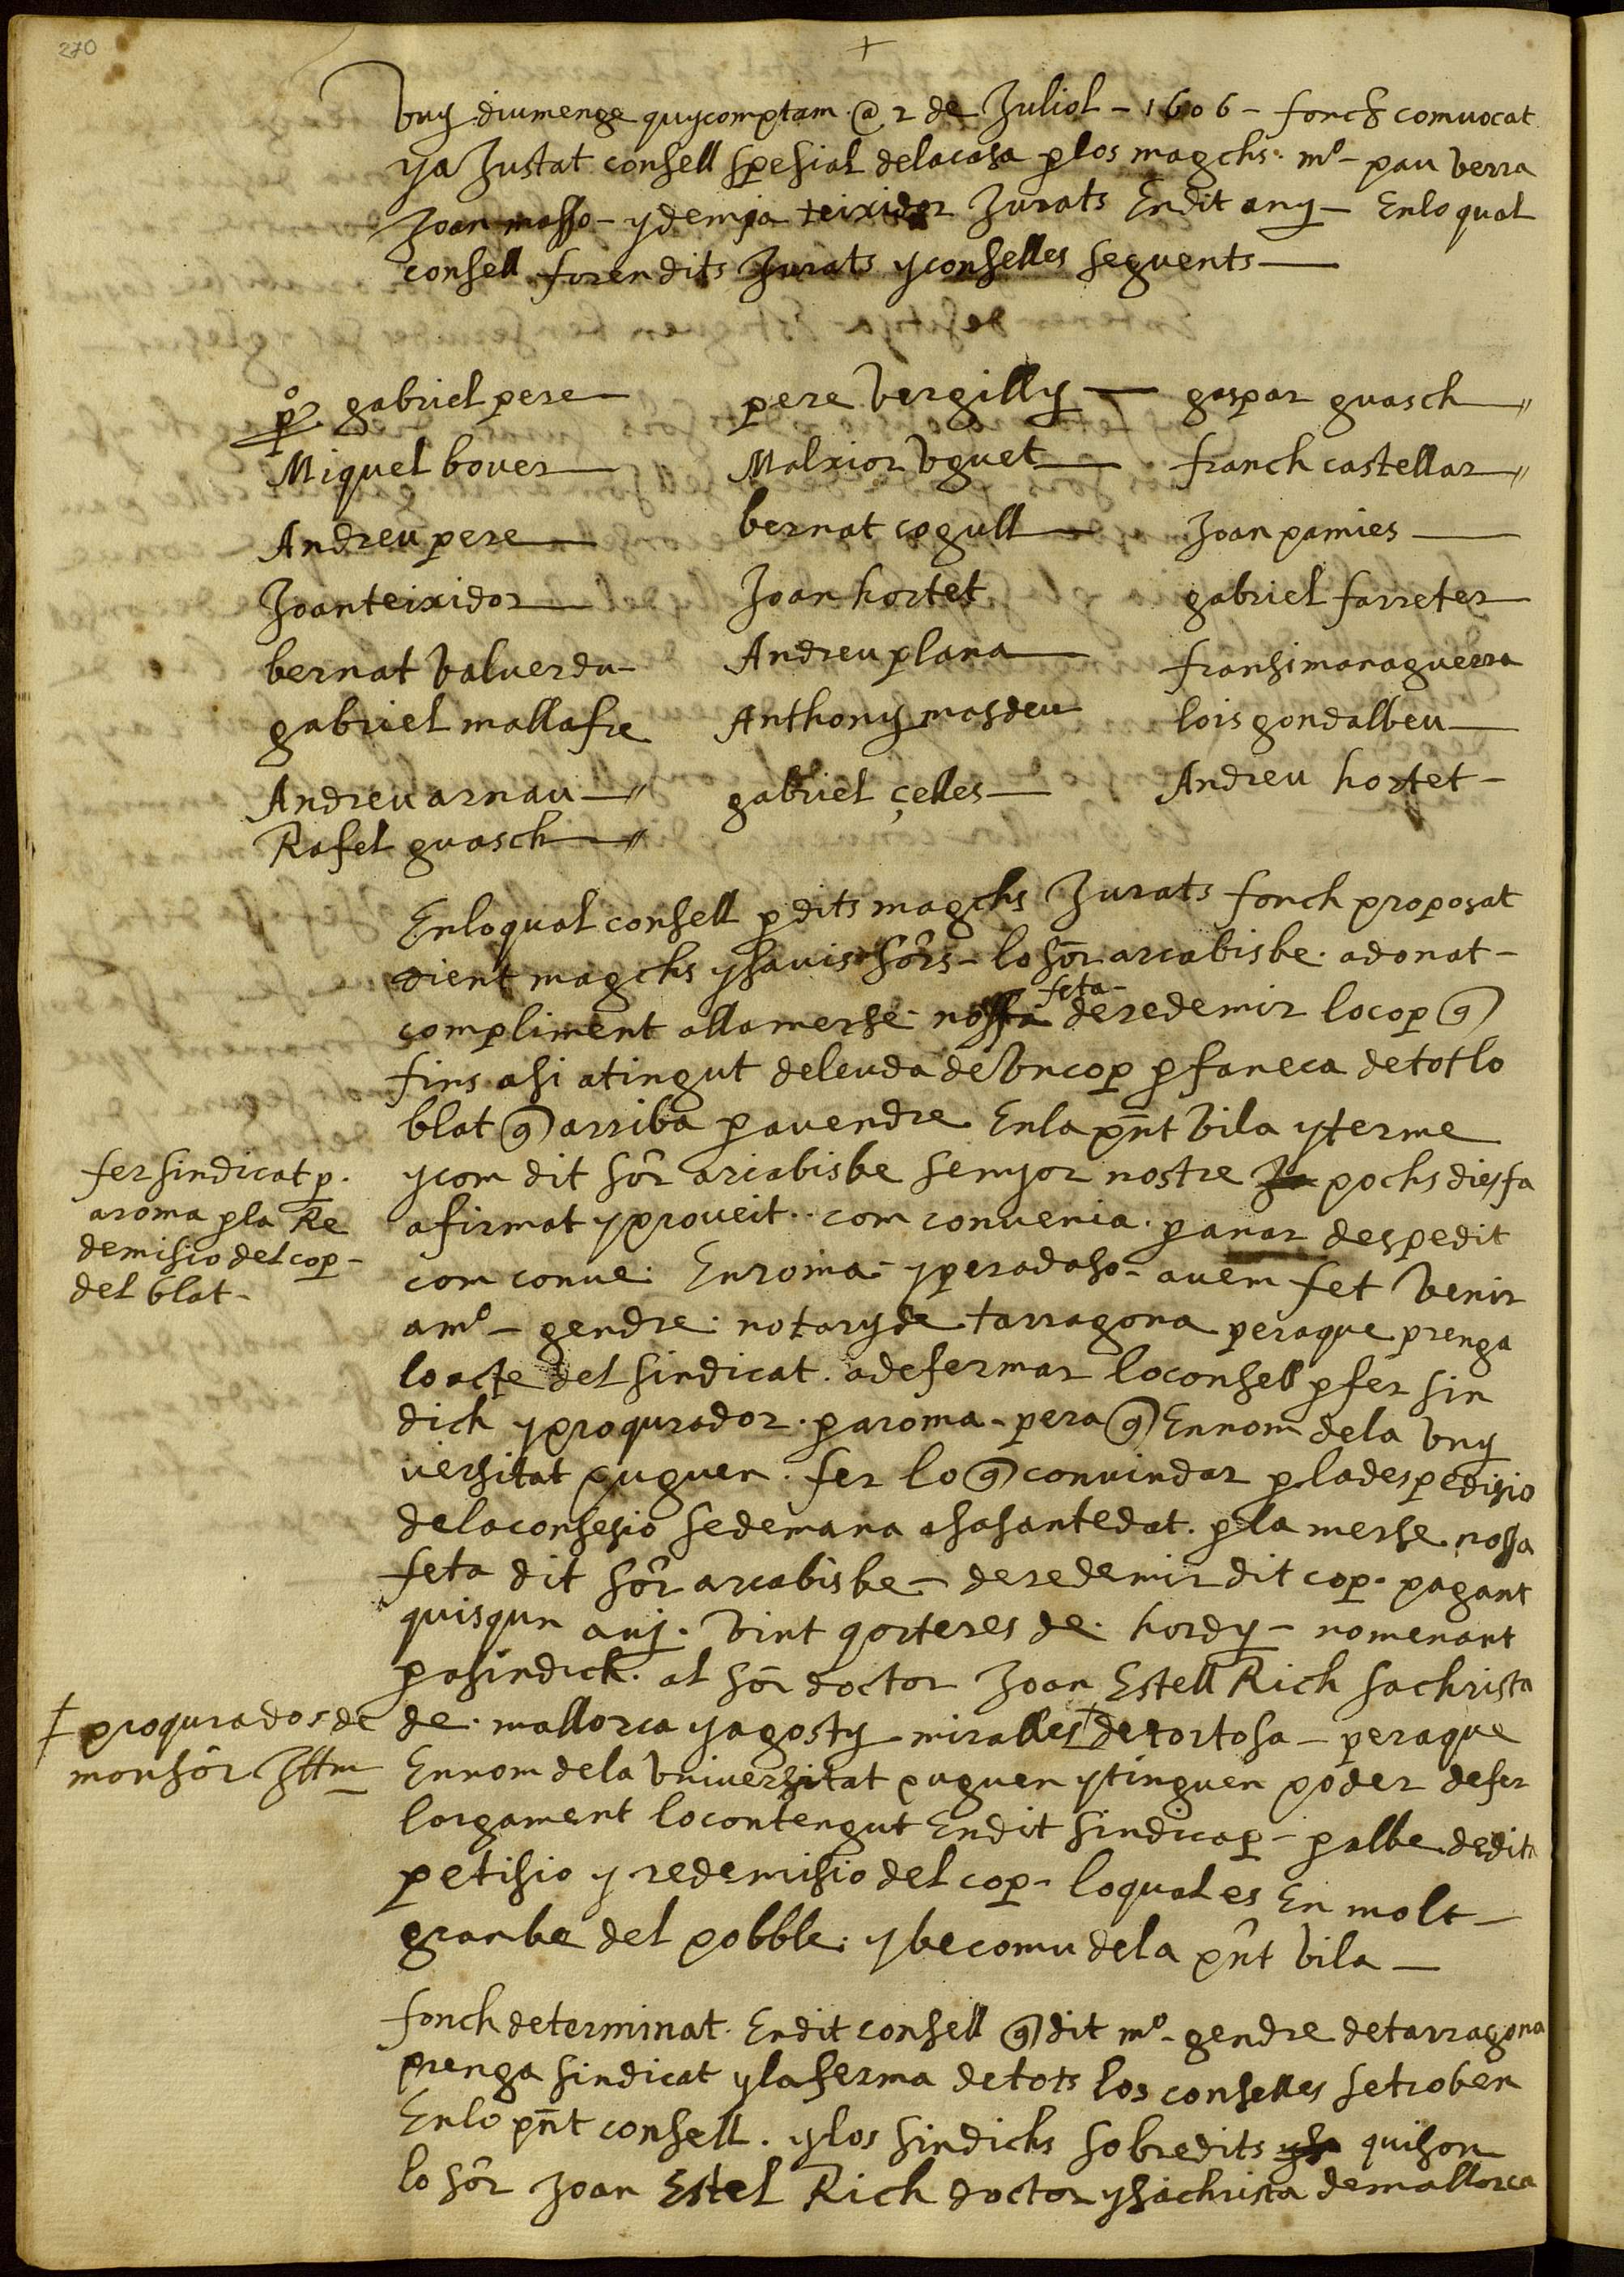 270
+
Vuy diumenge quycomptam @ 2 de Juliol - 1606 - fonch comuocat
ya Justat consell spesial delacasa p los magchs. mº - pau verra
Joan masso - y demja teixidor Jurats Endit any - Enlo qual
consell foren dits Jurats y conselles seguents
pº gabriel pere
Miquel bouer
Andreu pere
Joan teixidor
bernat valuerdu
gabriel mallafre
Andreu arnau
Rafel guasch
pere vergilly
Malxior vguet
bernat cogull
Joan hortet
Andreu plana
Anthony masdeu
gabriel çelles
gaspar guasch
franch castellar
Joan pamies
gabriel farreter
fransi managuerra
lois gondalbeu
Andreu hortet
Enloqual consell p dits magchs Jurats fonch proposat
dient magchs y sauis sõrs - lo sõr arcabisbe. adonat -
feta
compliment alla merse nossa de redemir lo cop q̃
fins asi a tingut deleuda de vn cop p faneca de tot lo
blat q̃ arriba p a uendre Enla pñt vila y terme
fer sindicat p.
aroma p la Re
demisio del cop -
del blat -
y com dit sõr arcabisbe senyor nostre Ja pochs dies fa
a firmat y proueit. com conuenia. p anar despedit
com conue. En roma - y per a daso - auem fet venir
a mº - gendre. notary de tarragona peraque prenga
lo acte del sindicat. a de fermar lo consell p fer sin
dich y proqurador. p a roma - pera q̃ En nom de la vny
uersitat puguen. fer lo q̃ conuindar p la despedisio
de la consesio se demana a sa santedat. p la merse nossa
feta dit sõr arcabisbe - de redemir dit cop. pagant
quisqun any. vint qorteres de. hordy - nomenant
p a sindich. al sõr doctor Joan Estell Rich sachrista
‡ proqurados de
monsõr Jllm
de. mallorca y agosty miralles + de tortosa - peraque
En nom de la vniuersitat puguen y tinguen poder de fer
lorgament lo contengut En dit sindicap - p al be de dita
petisio y redemisio del cop - loqual es En molt -
gran be del pobble. y be comu de la pñt vila -
fonch determinat. Endit consell q̃ dit mº - gendre de tarragona
prenga sindicat y la ferma de tots los conselles se troben
Enlo pñt consell. y los sindichs sobredits qui son
lo sõr Joan Estel Rich doctor y sachrista de mallorca